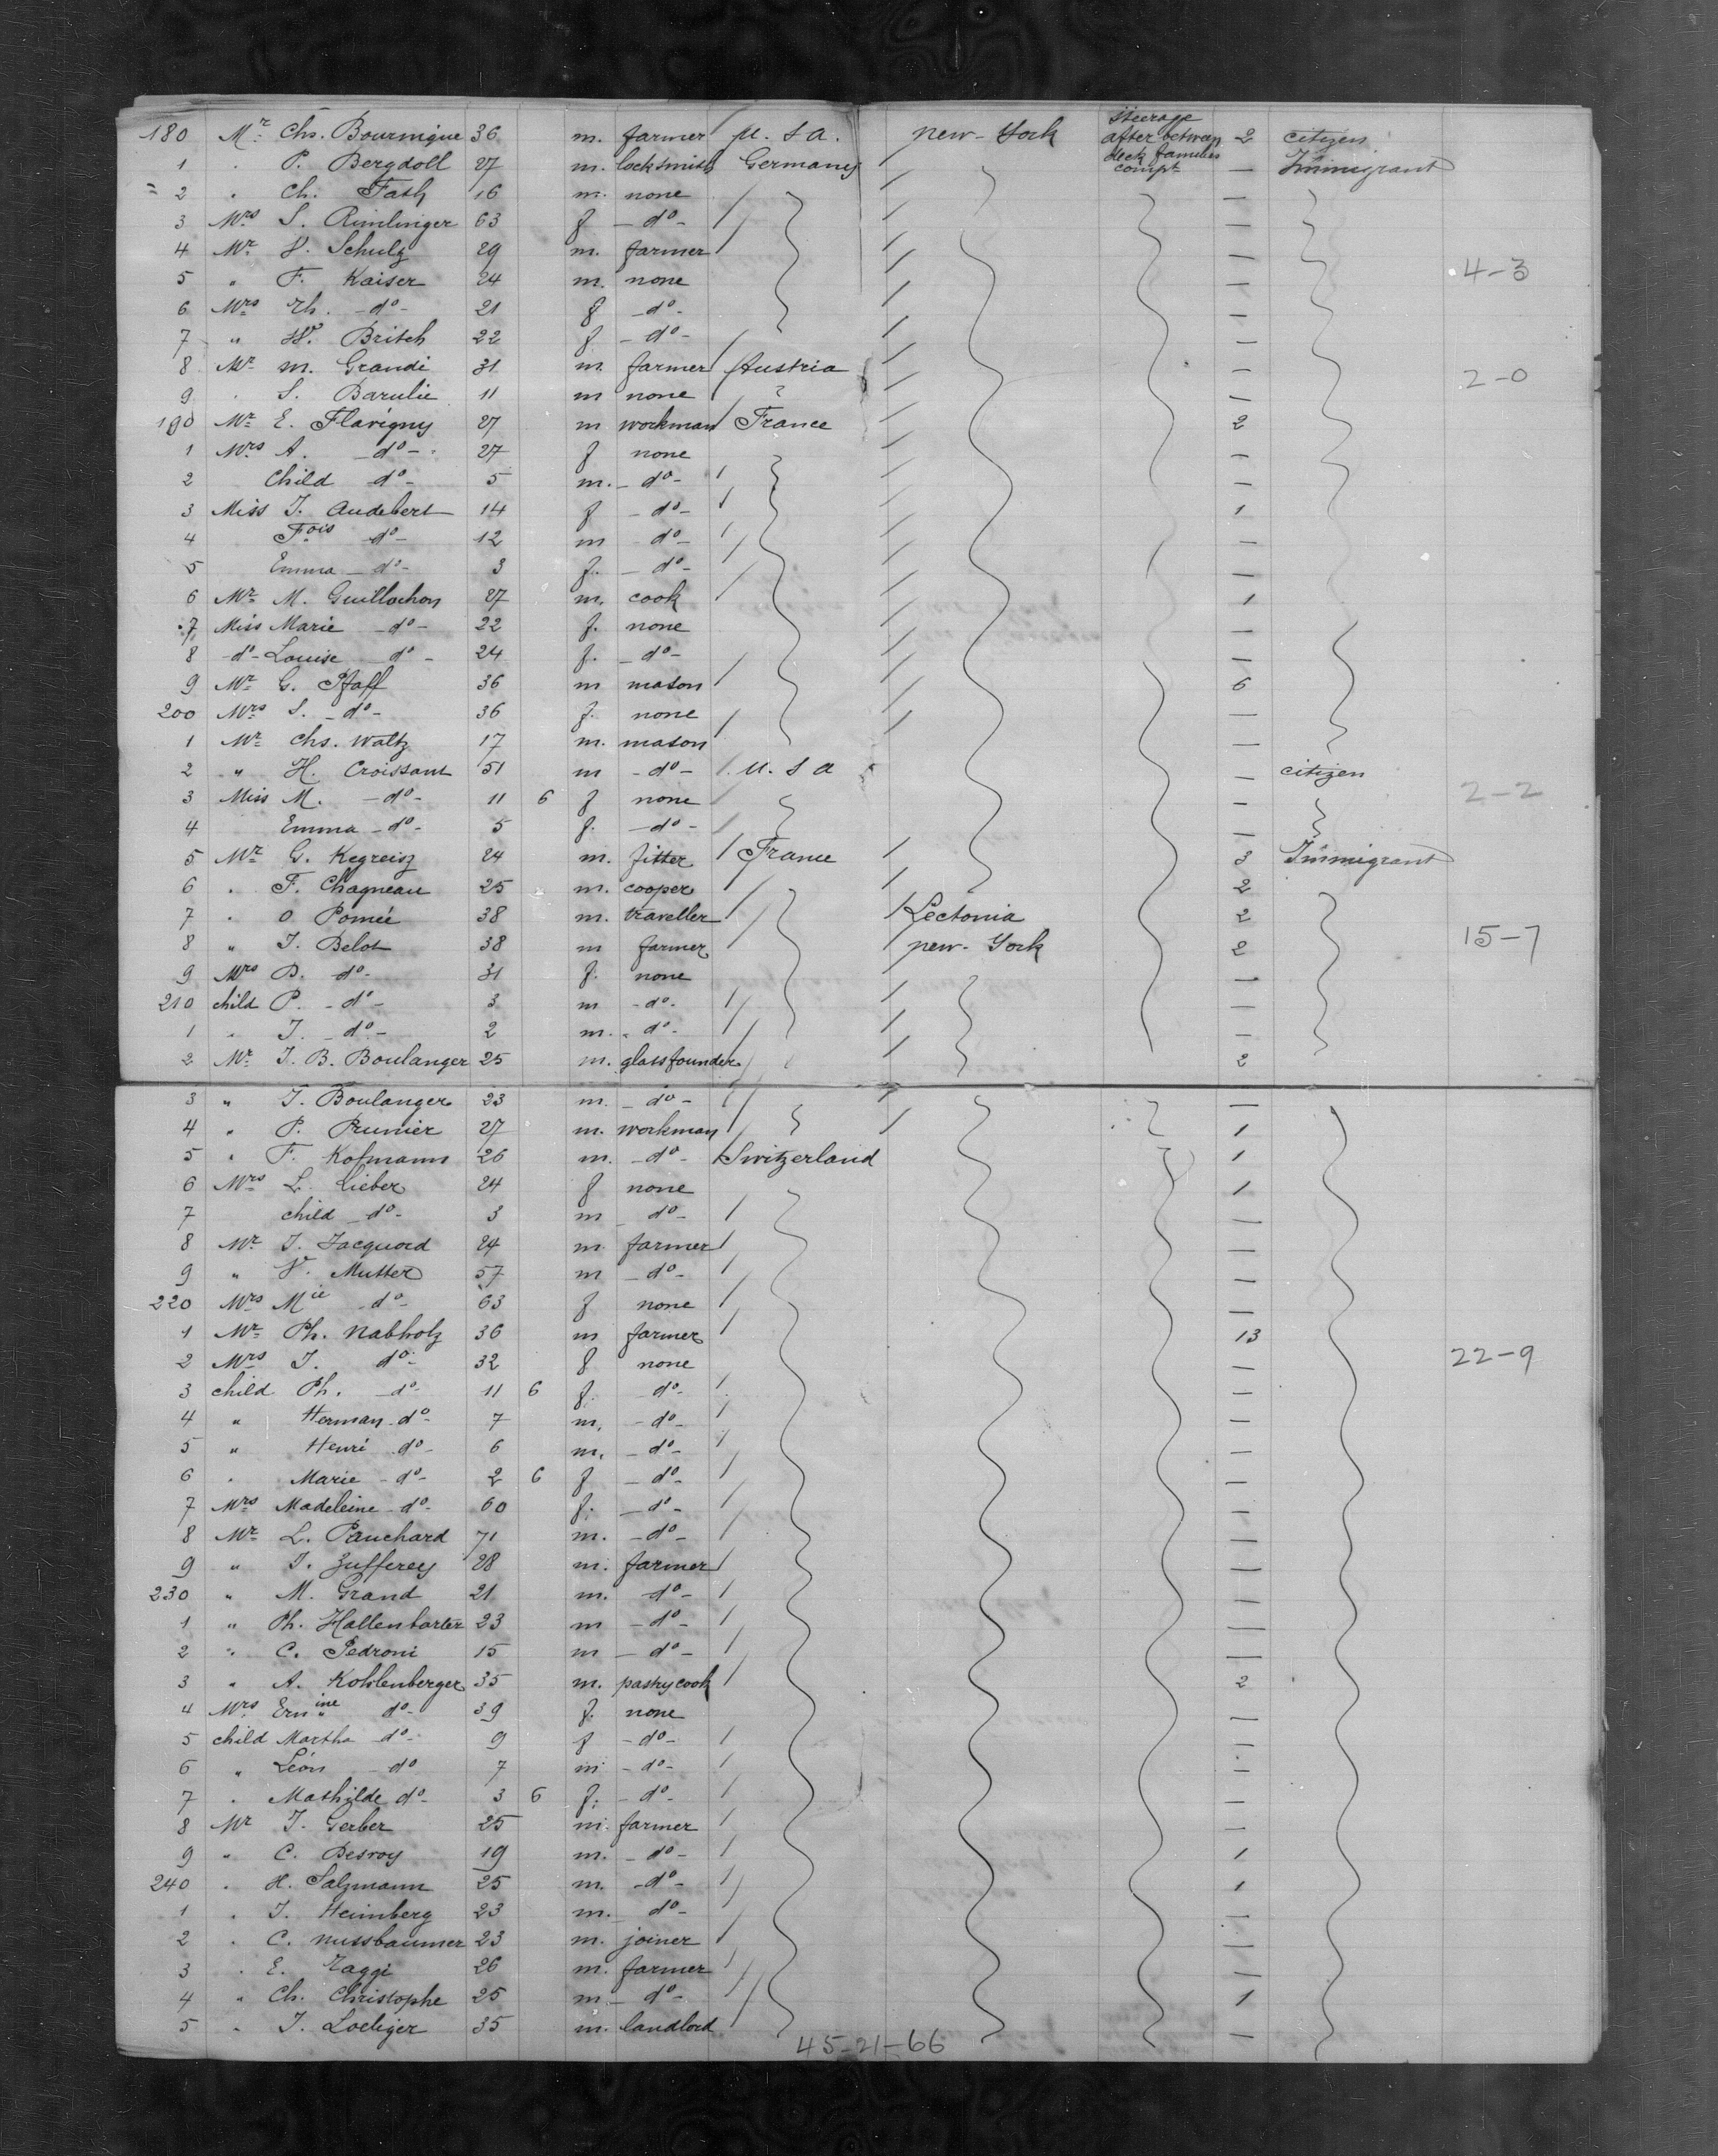 180 Mr Chs. Bournique 36 m. farmer U. S a. new-York steerage after between deck families compt 2 citizen
1 " P. Bergdoll 27 m. locksmith Germany — Immigrant
2 " Ch. Fath 16 m. none —
3 Mrs S. Rimlinger 63 f -do- —
4 Mr V. Schulz 29 m. farmer —
5 " F. Kaiser 24 m. none — 4-3
6 Mrs Th. -do- 21 f -do- —
7 " W. Britch 22 f -do- —
8 Mr m. Grandi 31 m farmer Austria — 2-0
9 " S. Barulie 11 m none —
190 Mr E. Flavigny 27 m workman France 2
1 Mrs A. -do- 27 f none —
2 Child do- 5 m. -do- —
3 Miss J. Audebert 14 f -do- 1
4 Fois do- 12 m -do- —
5 Emma -do- 3 f. -do- —
6 Mr M. Guillochon 27 m. cook 1
7 Miss Marie -do- 22 f. none —
8 -do- Louise do- 24 f. -do- —
9 Mr G. Pfaff 36 m mason 6
200 Mrs S. -do- 36 f. none —
1 Mr Chs. Waltz 17 m. mason —
2 " H. Croissant 51 m -do- U. S a — citizen
3 Miss M. -do- 11 6 f none — 2-2
4 Emma -do- 5 f. -do- —
5 Mr G. Kegreisz 24 m. fitter France 3 Immigrant
6 " F. Chagneau 25 m. cooper 2
7 " O Pomée 38 m. traveller Lectonia 2
8 " J. Belot 38 m farmer new-York 2 15-7
9 Mrs B. do- 31 f. none —
210 child P. -do- 3 m -do- —
1 " J. -do- 2 m. -do- —
2 Mr J. B. Boulanger 25 m. glassfounder 2
3 " J. Boulanger 23 m. -do- —
4 " P. Prunier 27 m. workman 1
5 " F. Kofmann 26 m. -do- Switzerland 1
6 Mrs L. Lieber 24 f none 1
7 child -do- 3 m -do- —
8 Mr J. Jacquod 24 m. farmer —
9 " V. Mutter 57 m -do- —
220 Mrs Mie do- 63 f none —
1 Mr Ph. Nabholz 36 m farmer 13
2 Mrs J. do- 32 f none — 22-9
3 child Ph. -do- 11 6 f. -do- —
4 " Herman do- 7 m. -do- —
5 " Henri do- 6 m. -do- —
6 " Marie -do- 2 6 f -do- —
7 Mrs Madeleine do- 60 f. -do- —
8 Mr L. Pauchard 71 m. -do- —
9 " J. Zufferey 28 m. farmer —
230 " M. Grand 21 m. do- —
1 " Ph. Hallenbarter 23 m -do- —
2 " C. Pedroni 15 m -do- —
3 " A. Kohlenberger 35 m. pastry cook 2
4 Mrs Ernine do- 39 f. none —
5 child Martha do- 9 f -do- —
6 " Léon do 7 m -do- —
7 " Mathilde do- 3 6 f. -do- —
8 Mr J. Gerber 25 m. farmer —
9 " C. Besroy 19 m. -do- 1
240 " H. Salzmann 25 m. -do- 1
1 " J. Heimberg 23 m. do- —
2 " C. Nussbaumer 23 m. joiner —
3 " E. Taggi 26 m. farmer —
4 " Ch. Christophe 25 m -do- 1
5 " J. Loeliger 35 m. landlord —
45-21-66